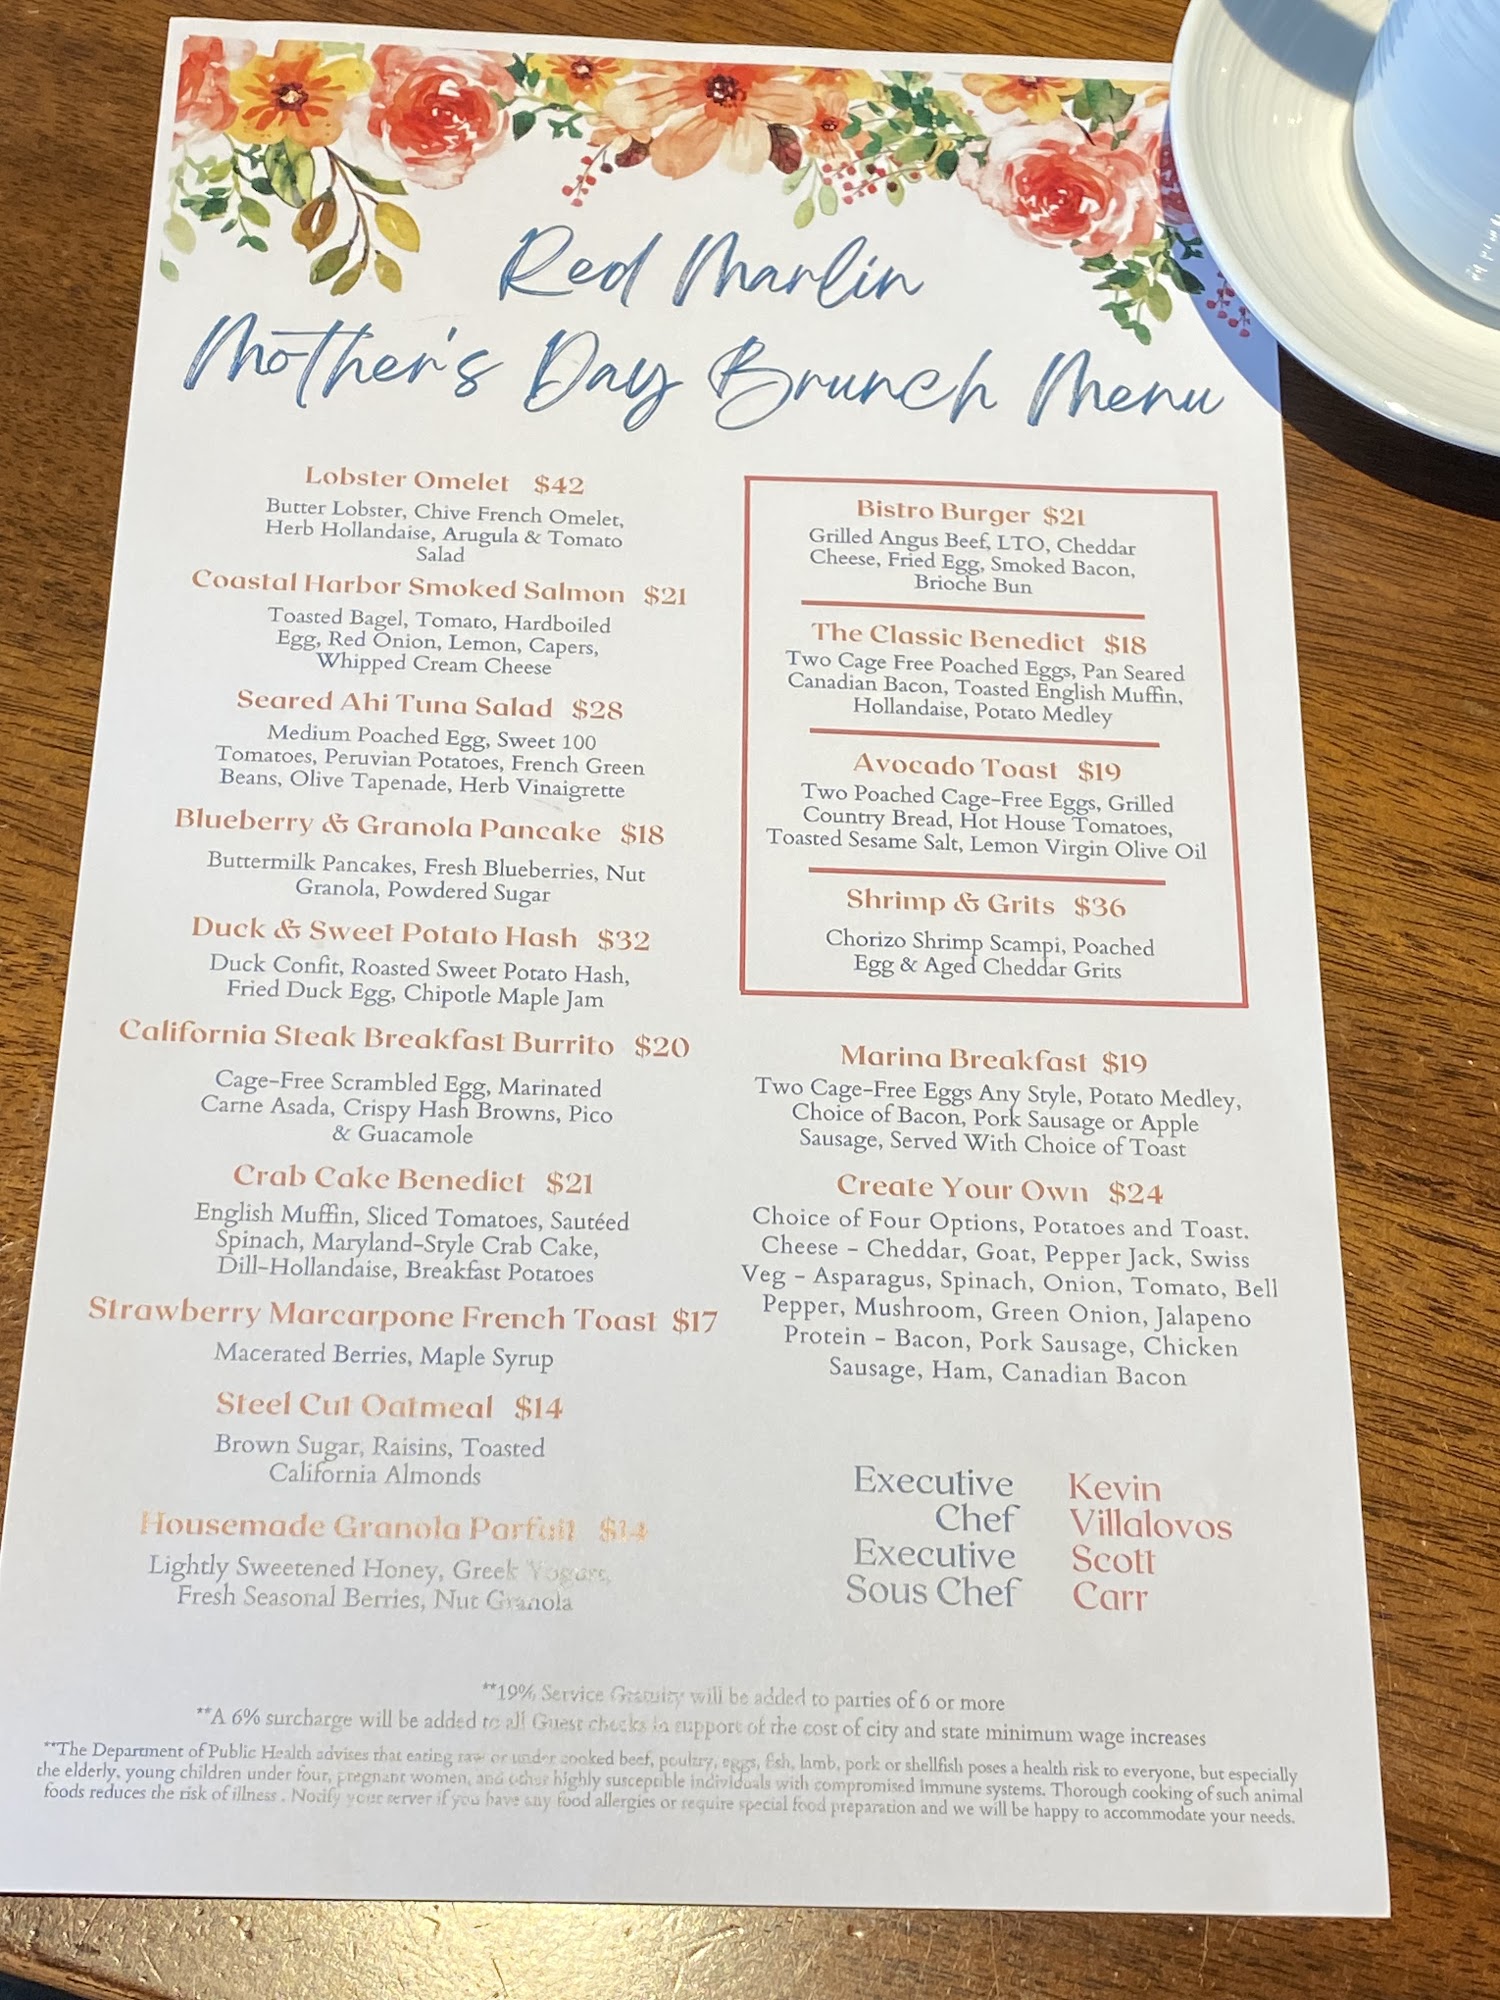 Red Marlin
Mother's Day Brunch Menu
Lobster Omelet $42
Butter Lobster, Chive French Omelet,
Herb Hollandaise, Arugula & Tomato
Salad
Coastal Harbor Smoked Salmon $21
Toasted Bagel, Tomato, Hardboiled
Egg, Red Onion, Lemon, Capers,
Whipped Cream Cheese
Seared Ahi Tuna Salad $28
Medium Poached Egg, Sweet 100
Tomatoes, Peruvian Potatoes, French Green
Beans, Olive Tapenade, Herb Vinaigrette
Blueberry & Granola Pancake $18
Buttermilk Pancakes, Fresh Blueberries, Nut
Granola, Powdered Sugar
Duck & Sweet Potato Hash $32
Duck Confit, Roasted Sweet Potato Hash,
Fried Duck Egg, Chipotle Maple Jam
California Steak Breakfast Burrito $20
Cage-Free Scrambled Egg, Marinated
Carne Asada, Crispy Hash Browns, Pico
& Guacamole
Crab Cake Benedict $21
English Muffin, Sliced Tomatoes, Sautéed
Spinach, Maryland-Style Crab Cake,
Dill-Hollandaise, Breakfast Potatoes
Strawberry Marcarpone French Toast $17
Macerated Berries, Maple Syrup
Steel Cut Oatmeal $14
Brown Sugar, Raisins, Toasted
California Almonds
Housemade Granola Parfait $14
Lightly Sweetened Honey, Greek Yogurt,
Fresh Seasonal Berries, Nut Granola
Bistro Burger $21
Grilled Angus Beef, LTO, Cheddar
Cheese, Fried Egg, Smoked Bacon,
Brioche Bun
The Classic Benedict $18
Two Cage Free Poached Eggs, Pan Seared
Canadian Bacon, Toasted English Muffin,
Hollandaise, Potato Medley
Avocado Toast $19
Two Poached Cage-Free Eggs, Grilled
Country Bread, Hot House Tomatoes,
Toasted Sesame Salt, Lemon Virgin Olive Oil
Shrimp & Grits $36
Chorizo Shrimp Scampi, Poached
Egg & Aged Cheddar Grits
Marina Breakfast $19
Two Cage-Free Eggs Any Style, Potato Medley,
Choice of Bacon, Pork Sausage or Apple
Sausage, Served With Choice of Toast
Create Your Own $24
Choice of Four Options, Potatoes and Toast.
Cheese - Cheddar, Goat, Pepper Jack, Swiss
Veg - Asparagus, Spinach, Onion, Tomato, Bell
Pepper, Mushroom, Green Onion, Jalapeno
Protein - Bacon, Pork Sausage, Chicken
Sausage, Ham, Canadian Bacon
Executive Kevin
Chef Villalovos
Executive Scott
Sous Chef Carr
**19% Service Gratuity will be added to parties of 6 or more
**A 6% surcharge will be added to all Guest checks in support of the cost of city and state minimum wage increases
**The Department of Public Health advises that eating raw or under cooked beef, poultry, eggs, fish, lamb, pork or shellfish poses a health risk to everyone, but especially
the elderly, young children under four, pregnant women, and other highly susceptible individuals with compromised immune systems. Thorough cooking of such animal
foods reduces the risk of illness . Notify your server if you have any food allergies or require special food preparation and we will be happy to accommodate your needs.